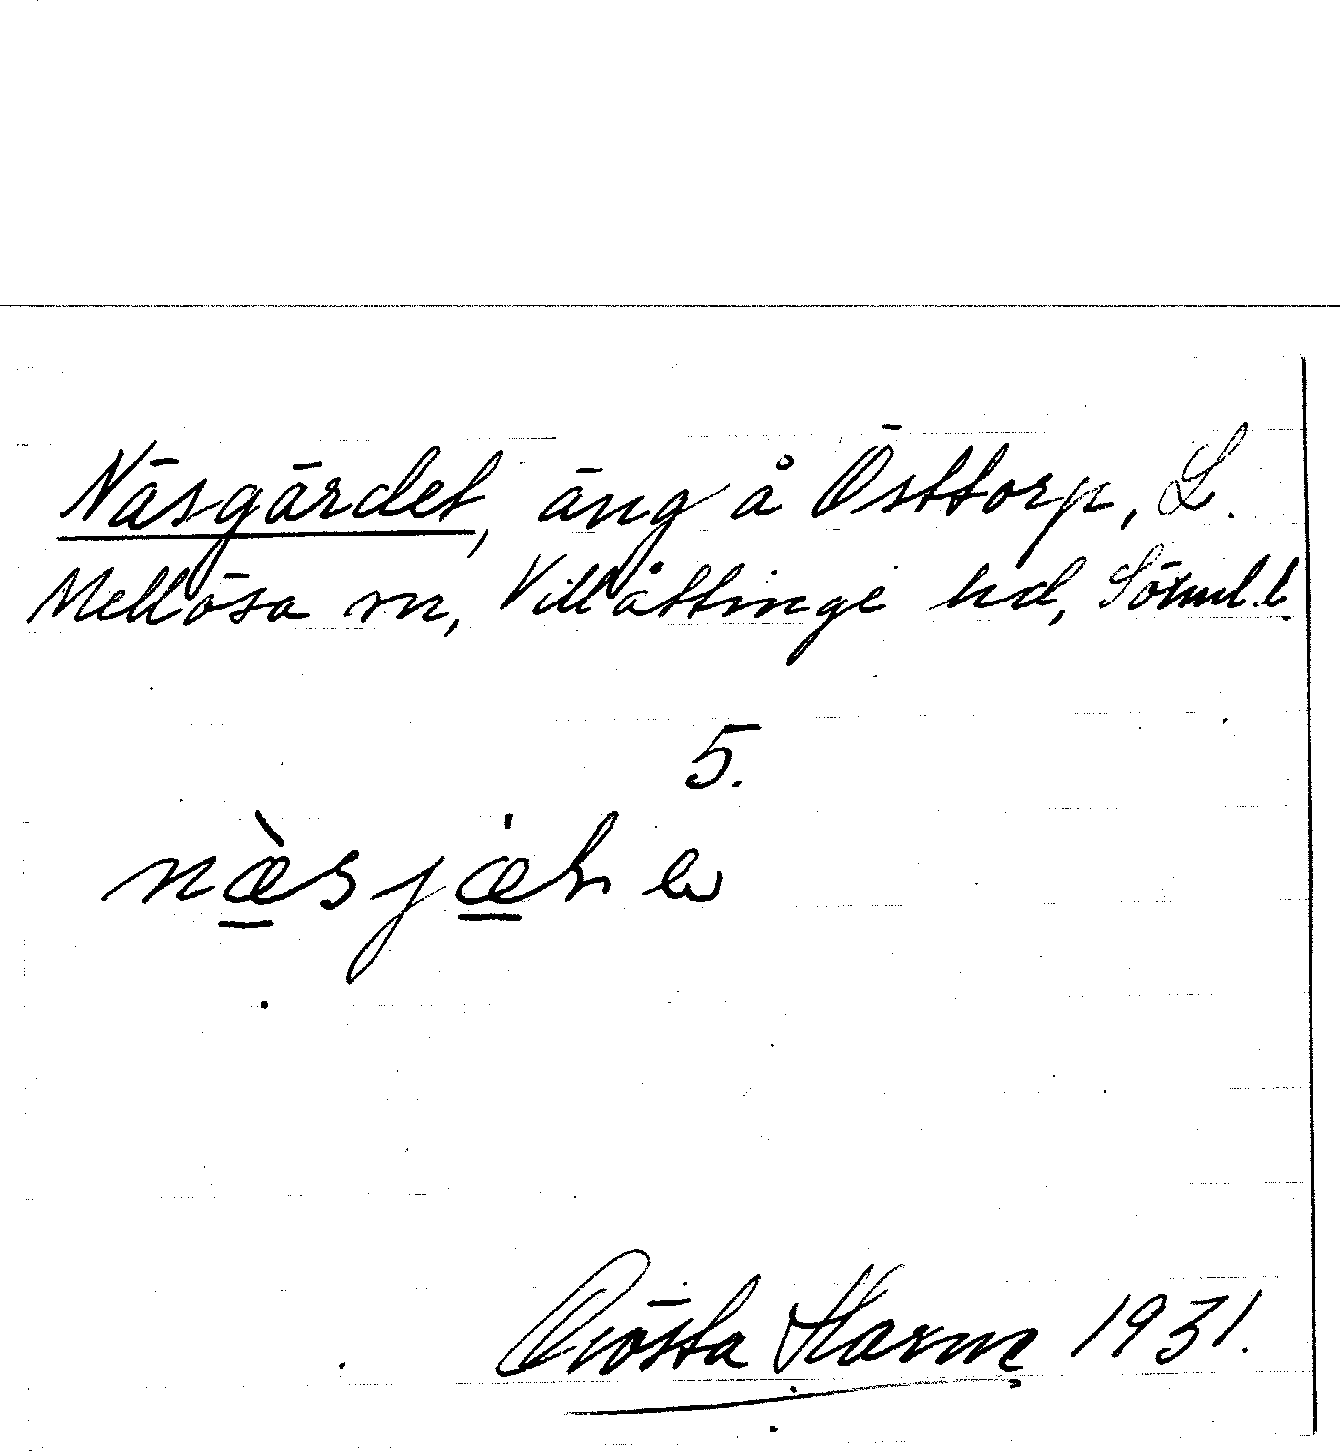 Näsgärdet, äng å Östtorp, L.
Mellösa sn, Villåttinge hd, Sörml. l.
5.
næ̀sjæ
Gösta Harm 1931.